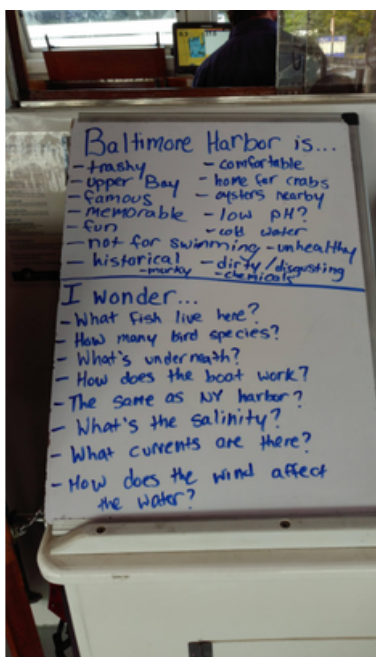 Baltimore Harbor is...
- trashy
- upper Bay
- famous
- memorable
- fun
- not for swimming
- historical
- murky
- comfortable
- home for crabs
- oysters nearby
- low pH?
- cold water
- unhealthy
- dirty/disgusting
- chemicals
I wonder...
- What fish live here?
- How many bird species?
- What's underneath?
- How does the boat work?
- The same as NY harbor?
- What's the salinity?
- What currents are there?
- How does the wind affect
the water?